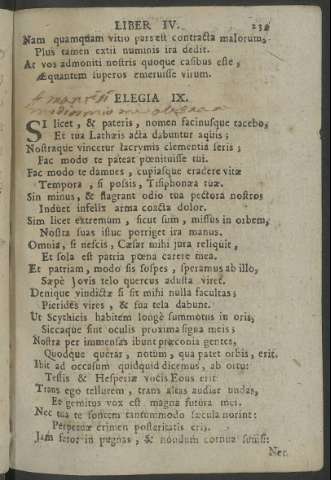 LIBER IV.
Nam quamquam vitio pars est contracta malorum,
Plus tamen extii numinis ira dedit.
At vos admoniti nostris quoque casibus este,
Æquantem superos emeruisse virum.
ELEGIA IX.
SI licet, & pateris, nomen facinusque tacebo,
Et tua Lathæis acta dabuntur aquis;
Nostraque vincetur lacrymis clementia seris;
Fac modo te pateat pœnituisse tui.
Fac modo te damnes, cupiasque eradere vitæ
Tempora, si possis, Tisiphonæa tuæ.
Sin minus, & flagrant odio tua pectora nostro
Induet infelix arma coacta dolor.
Sim licet extremum, sicut sum, missus in orbem,
Nostra suas istuc porriget ira manus.
Omnia, si nescis, Cæsar mihi jura reliquit,
Et sola est patria pœna carere mea.
Et patriam, modo sis sospes, speramus ab illo,
Sæpè Jovis telo quercus adusta viret.
Denique vindictæ si sit mihi nulla facultas;
Pierides vires, & sua tela dabunt.
Ut Scythicis habitem longè summotus in oris,
Siccaque sint oculis proxima signa meis;
Nostra per immensas ibunt præconia gentes,
Quodque querar, notum, qua patet orbis, erit.
Ibit ad occasum quidquid dicemus, ab ortu:
Testis & Hesperiæ vocis Eous erit.
Trans ego tellurem, trans altas audiar undas,
Et gemitus vox est magna futura mei.
Nec tua te sontem tantummodo sæcula norint:
Perpetuæ crimen posteritatis eris.
Jam feror in pugnas, & nondum cornua sumsi:
Nec